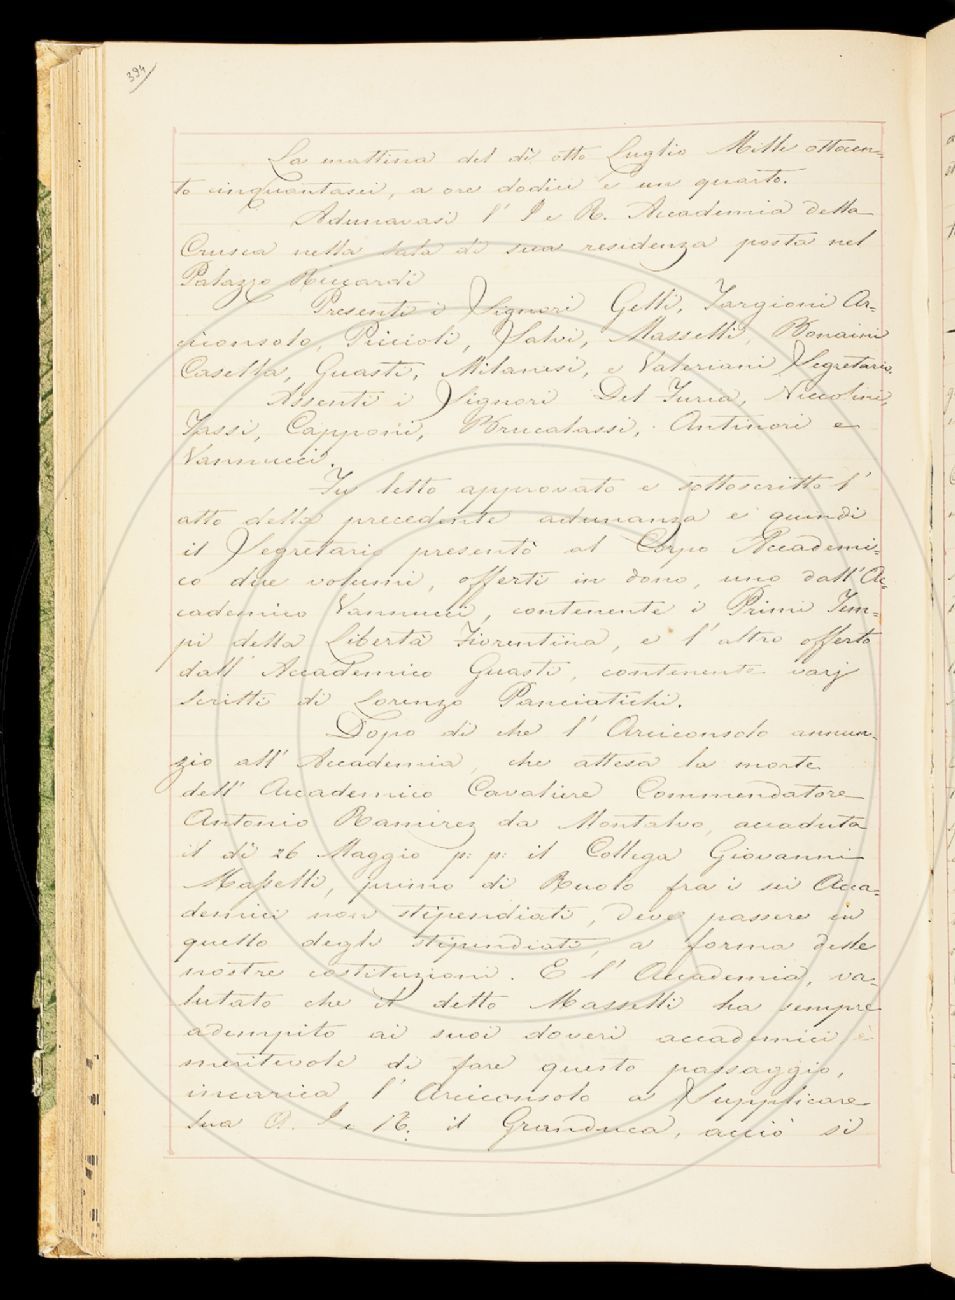 394
La mattina del dì otto Luglio Mille ottocen-
to cinquantasei, a ore dodici e un quarto.
Adunavasi l' I e R. Accademia della
Crusca nella sala di sua residenza posta nel
Palazzo Riccardi
Presenti i Signori Gelli, Targioni Ar-
ciconsolo, Piccioli, Salvi, Masselli, Bonaini
Casella, Guasti, Milanesi, e Valeriani Segretario.
Assenti i Signori Del Furia, Niccolini,
Tassi, Capponi, Brucalassi, Antinori e
Vannucci.
Fu letto approvato e sottoscritto l'
atto della precedente adunanza e quindi
il Segretario presentò al Corpo Accademi-
co due volumi, offerti in dono, uno dall' Ac-
cademico Vannucci, contenente i Primi Tem-
pi della Libertà Fiorentina, e l' altro offerto
dall' Accademico Guasti, contenente varj
scritti di Lorenzo Panciatichi.
Dopo di che l' Arciconsolo annun-
zio all' Accademia, che attesa la morte
dell' Accademico Cavaliere Commendatore
Antonio Ramirez da Montalvo, accaduta
il dì 26 Maggio p: p: il Collega Giovanni
Masselli, primo di Ruolo fra i sei Acca-
demici non stipendiati, deve passare in
quello degli stipendiati, a forma delle
nostre costituzioni. E l' Accademia, va-
lutato che il detto Masselli ha sempre
adempito ai suoi doveri accademici è
meritevole di fare questo passaggio,
incarica l' Arciconsolo a Supplicare
Sua A. I e R. il Granduca, acciò si